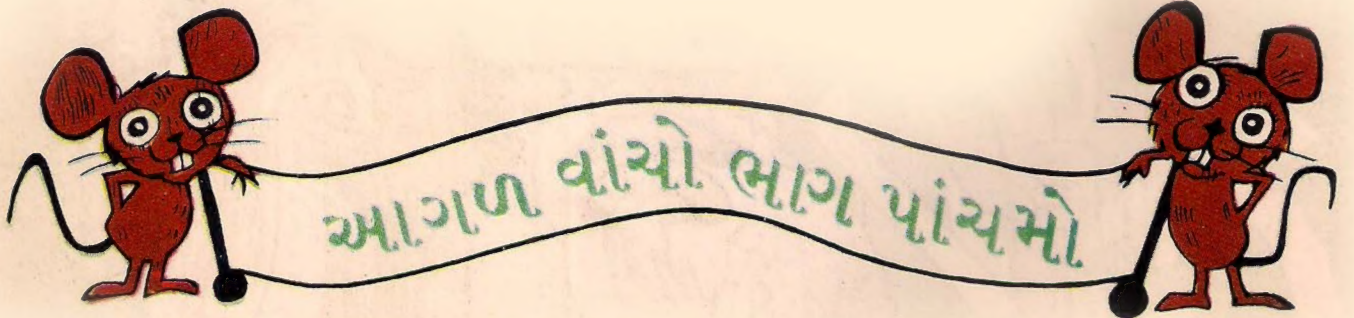 આગળ વાંચો ભાગ પાંચમો